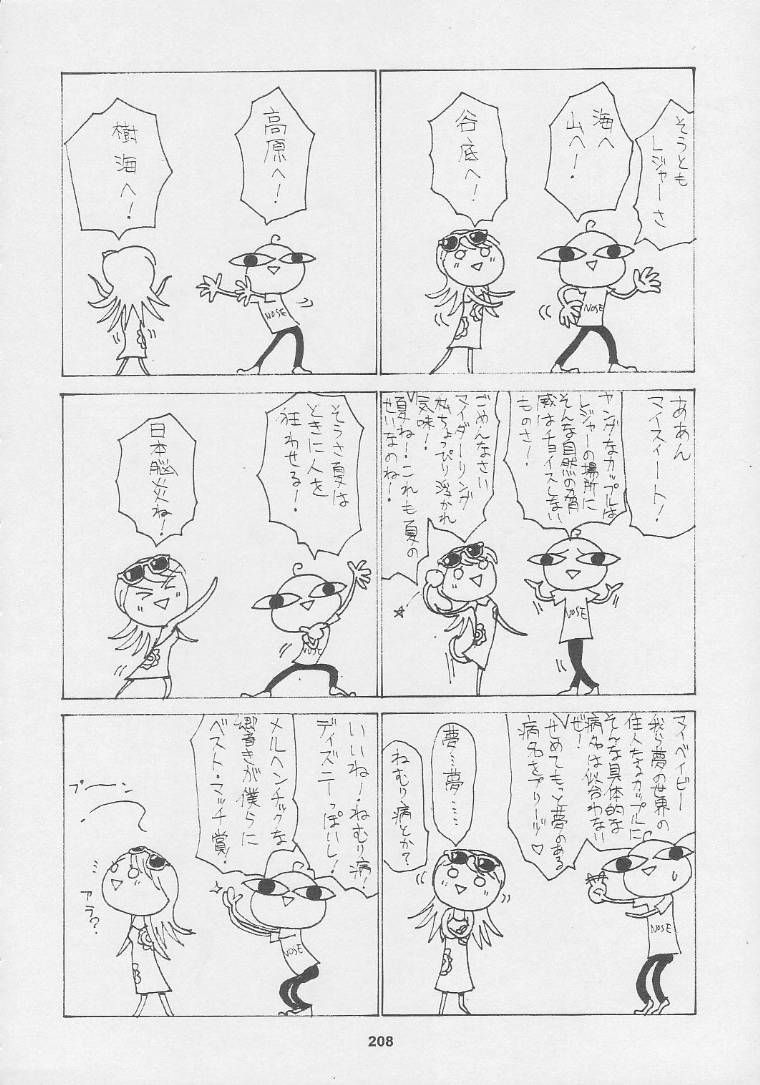 そうとも
レジャーさ
海へ
山へ!
谷底へ!
NOSE
高原へ!
樹海へ!
NOSE
ああん
マイスィート!
ヤングなカップルは
レジャーの場所に
そんな自然の脅
威はチョイスしない
ものさ!
ごめんなさい
マイダーリング
私ちょっぴり浮かれ
気味!
夏ね!これも夏の
せいなのね!
NOSE
そうさ夏は
ときに人を
狂わせる!
日本脳炎ね!
NOSE
マイベイビー
我ら夢の世界の
住人たるカップルに
そんな具体的な
病名は似合わない
ぜ!
せめてもっと夢のある
病名をプリーヅ♡
夢…夢……
ねむり病とか?
NOSE
いいね!ねむり病!
ディズニーっぽいし!
メルヘンチックな
響きが僕らに
ベスト・マッチ賞!
プーン
アラ?
NOSE
208